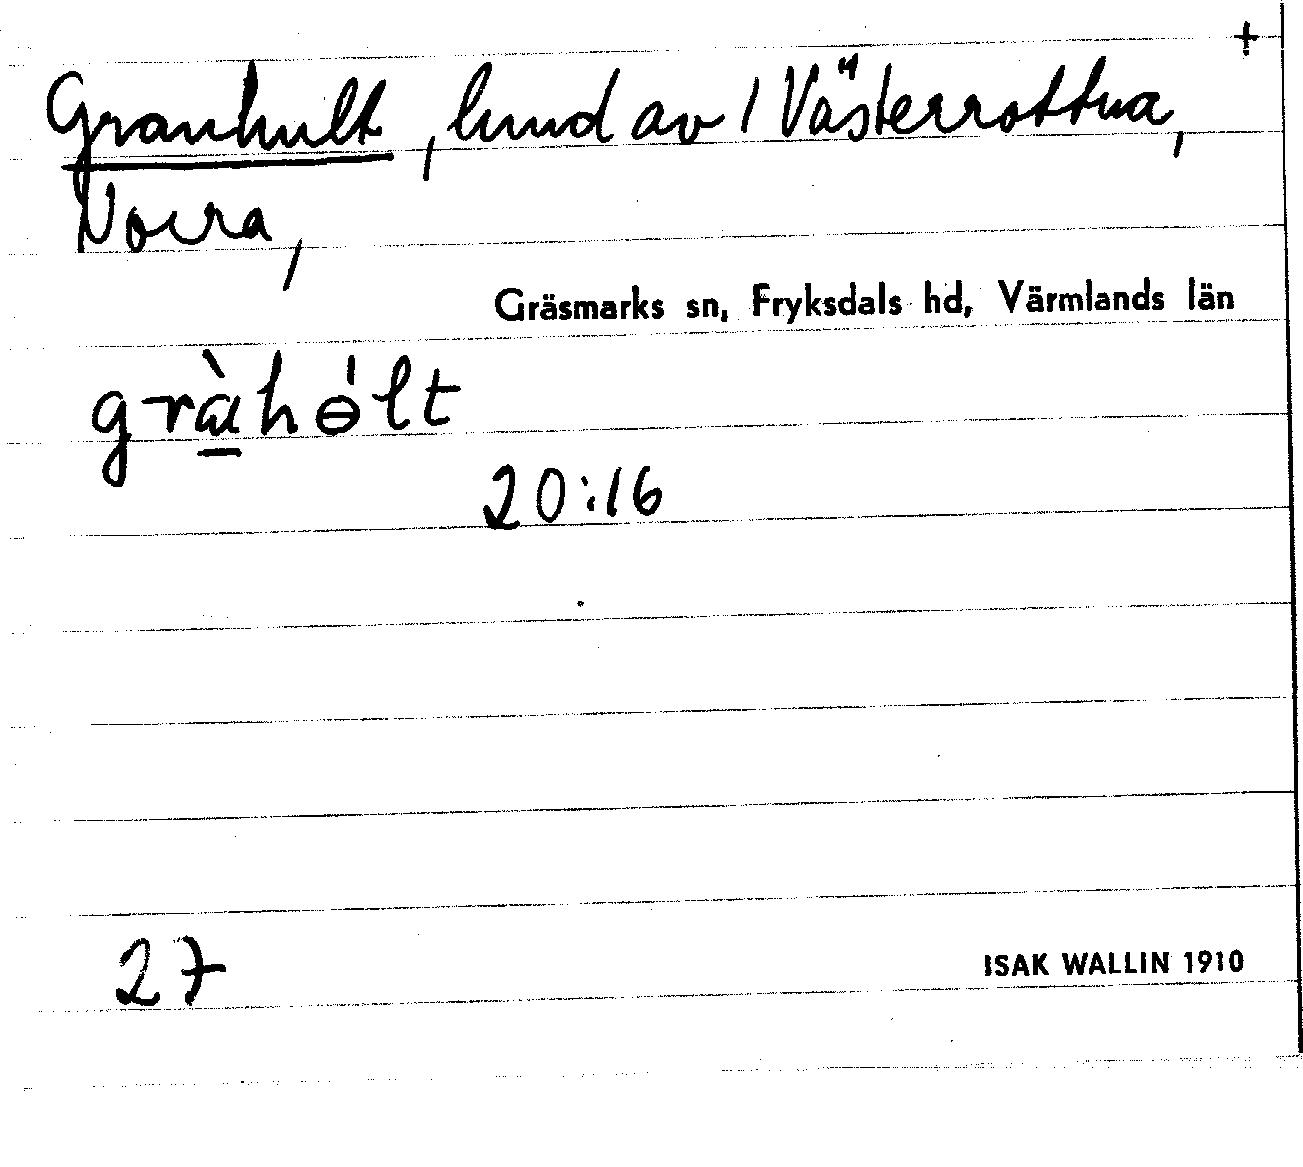 +
Granhult, lund av 1 Västerrottna,
Norra,
Gräsmarks sn, Fryksdals hd, Värmlands län
gràhɵ́lt
20:16
27
ISAK WALLIN 1910